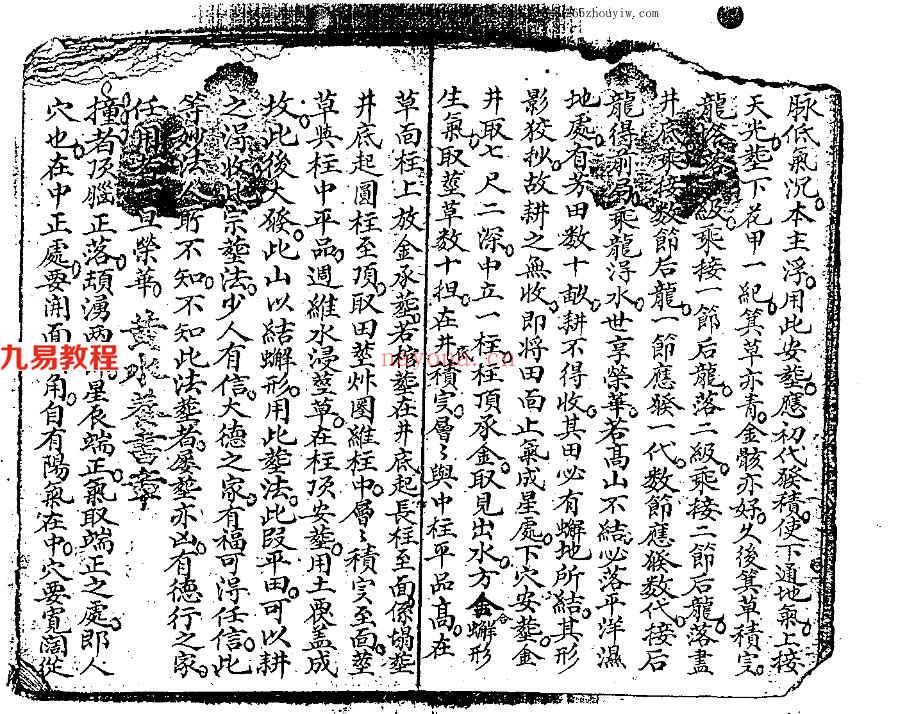 脉低氣沉本主浮用此安塟應初代發積使下通地氣上接
天光塟下花甲一紀箕草亦青金骸亦好久後箕草積实
龍落一級乘接一節后龍落二級乘接二節后龍落盡
井底乘接数節后龍一節應發一代数節應發数代接后
龍得前局乘龍浔水世享榮華若高山不結必落平洋濕
地處有芳田数十畝耕不得收其田必有蠏地所結其形
影狡抄故耕之無收即将田面止氣成星處下穴安塟金
井取七尺二深中立一柱柱頂承金取見出水方金蠏形
生氣取塟草数十担在井積实層〻與中柱平品髙在
草面柱上放金承塟若棺塟在井底起長柱至面係塌塟
井底起圓柱至頂取田塟艸圏維柱中層〻積实至面塟
草與柱中平品週維水浸塟草在柱頂安塟用土衆盖成
坟此後大發此山以結蠏形用此塟法此段平田可以耕
之浔收此宗塟法少人有信大德之家有福可得任信此
等妙法人所不知不知此法塟者屡塟亦凶有德行之家
任用 亘榮華
撞者頂腦正落頡湧两 星辰端正氣取端正之處即人
穴也在中正處要開面 角自有陽氣在中穴要寬闊從
九易教程